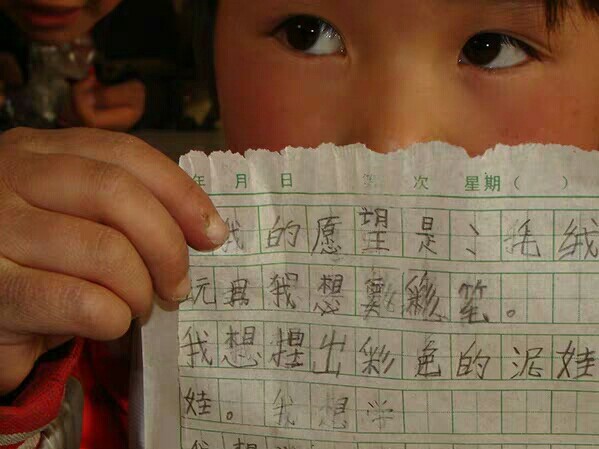 年 月 日 次 星期( )
我的愿望是:毛绒
玩具我想要彩笔。
我想捏出彩色的泥娃
娃。我想学
我想